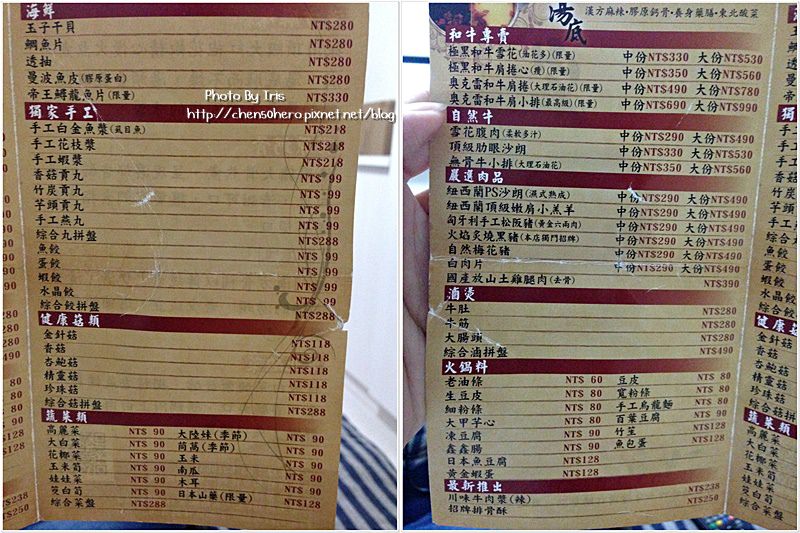 海鮮
玉子干貝 NT$280
鯛魚片 NT$280
透抽 NT$280
曼波魚皮(膠原蛋白) NT$280
帝王鱘龍魚片(限量) NT$330
Photo By Iris
http://chen50hero.pixnet.net/blog
獨家手工
手工白金魚漿(虱目魚) NT$218
手工花枝漿 NT$218
手工蝦漿 NT$218
香菇貢丸 NT$ 99
竹炭貢丸 NT$ 99
芋頭貢丸 NT$ 99
手工燕丸 NT$ 99
綜合丸拼盤 NT$288
魚餃 NT$ 99
蛋餃 NT$ 99
蝦餃 NT$ 99
水晶餃 NT$ 99
綜合餃拼盤 NT$288
健康菇類
金針菇 NT$118
香菇 NT$118
杏鮑菇 NT$118
精靈菇 NT$118
珍珠菇 NT$118
綜合菇拼盤 NT$288
蔬菜類
高麗菜 NT$ 90 大陸妹(季節) NT$ 90
大白菜 NT$ 90 茼蒿(季節) NT$ 90
花椰菜 NT$ 90 玉米 NT$ 90
玉米筍 NT$ 90 南瓜 NT$ 90
娃娃菜 NT$ 90 木耳 NT$ 90
筊白筍 NT$ 90 日本山藥(限量) NT$128
綜合菜盤 NT$288
湯底
漢方麻辣•膠原鈣骨•養身藥膳•東北酸菜
和牛專賣
極黑和牛雪花(油花多)(限量) 中份NT$330 大份NT$530
極黑和牛肩捲心(瘦)(限量) 中份NT$350 大份NT$560
奧克雷和牛肩捲(大理石油花)(限量) 中份NT$490 大份NT$780
奧克雷和牛肩小排(最高級)(限量) 中份NT$690 大份NT$990
自然牛
雪花腹肉(柔軟多汁) 中份NT$290 大份NT$490
頂級肋眼沙朗 中份NT$330 大份NT$530
無骨牛小排(大理石油花) 中份NT$350 大份NT$560
嚴選肉品
紐西蘭PS沙朗(濕式熟成) 中份NT$290 大份NT$490
紐西蘭頂級嫩肩小羔羊 中份NT$290 大份NT$490
匈牙利手工松阪豬(黃金六兩肉) 中份NT$290 大份NT$490
火焰炙燒黑豬(本店獨門招牌) 中份NT$290 大份NT$490
自然梅花豬 中份NT$290 大份NT$490
白肉片 中份NT$290 大份NT$490
國產放山土雞腿肉(去骨) NT$390
滷燙
牛肚 NT$280
牛筋 NT$280
大腸頭 NT$280
綜合滷拼盤 NT$490
火鍋料
老油條 NT$ 60 豆皮 NT$ 80
生豆皮 NT$ 80 寬粉條 NT$ 80
細粉條 NT$ 80 手工烏龍麵 NT$ 80
大甲芋心 NT$ 80 百葉豆腐 NT$ 90
凍豆腐 NT$ 80 竹笙 NT$ 90
鑫鑫腸 NT$ 80 魚包蛋 NT$128
日本魚豆腐 NT$128
黃金蝦蛋 NT$128
最新推出
川味牛肉漿(辣) NT$238
招牌排骨酥 NT$250